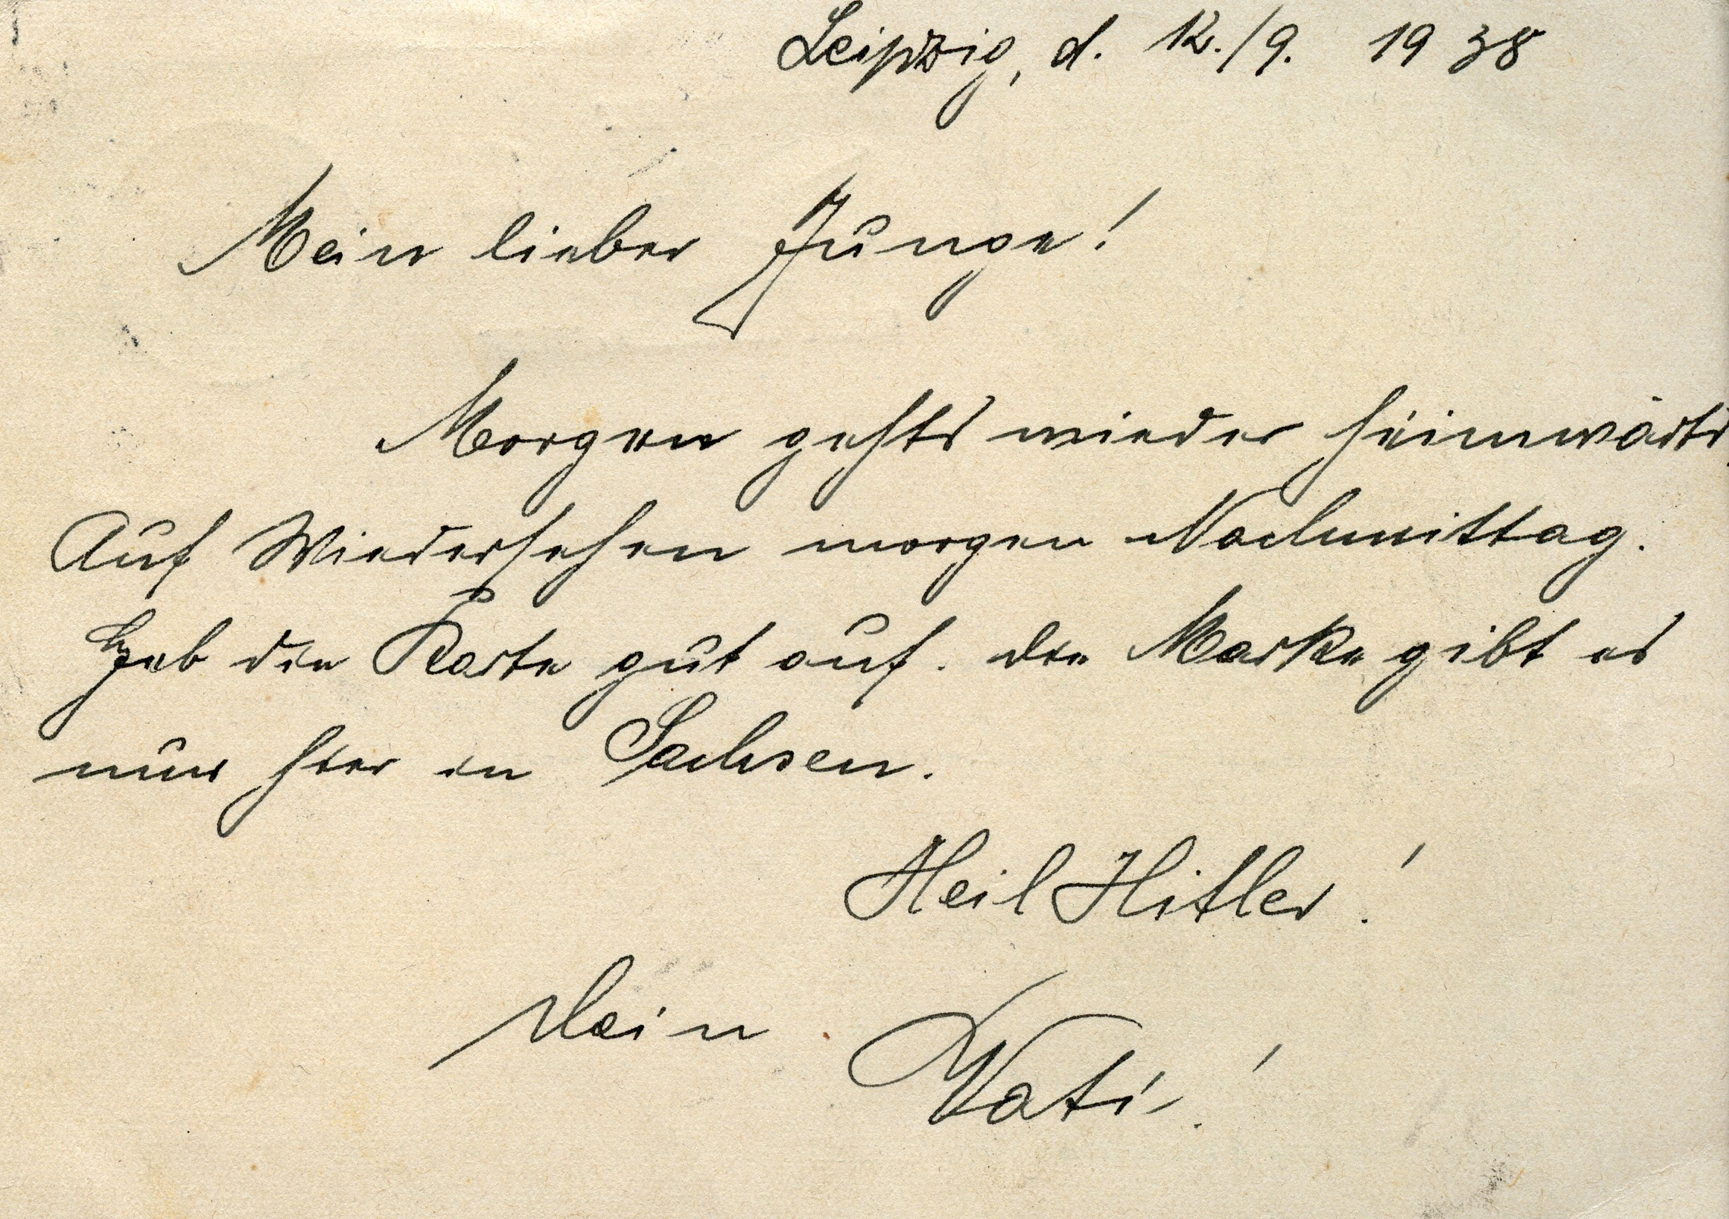 Leipzig, d. 12./9. 1938
Mein lieber Junge!
Morgen gehts wieder heimwärts.
Auf Wiedersehen morgen Nachmittag.
Heb die Karte gut auf. die Marke gibt es
nur hier in Sachsen.
Heil Hitler!
Dein Vati!